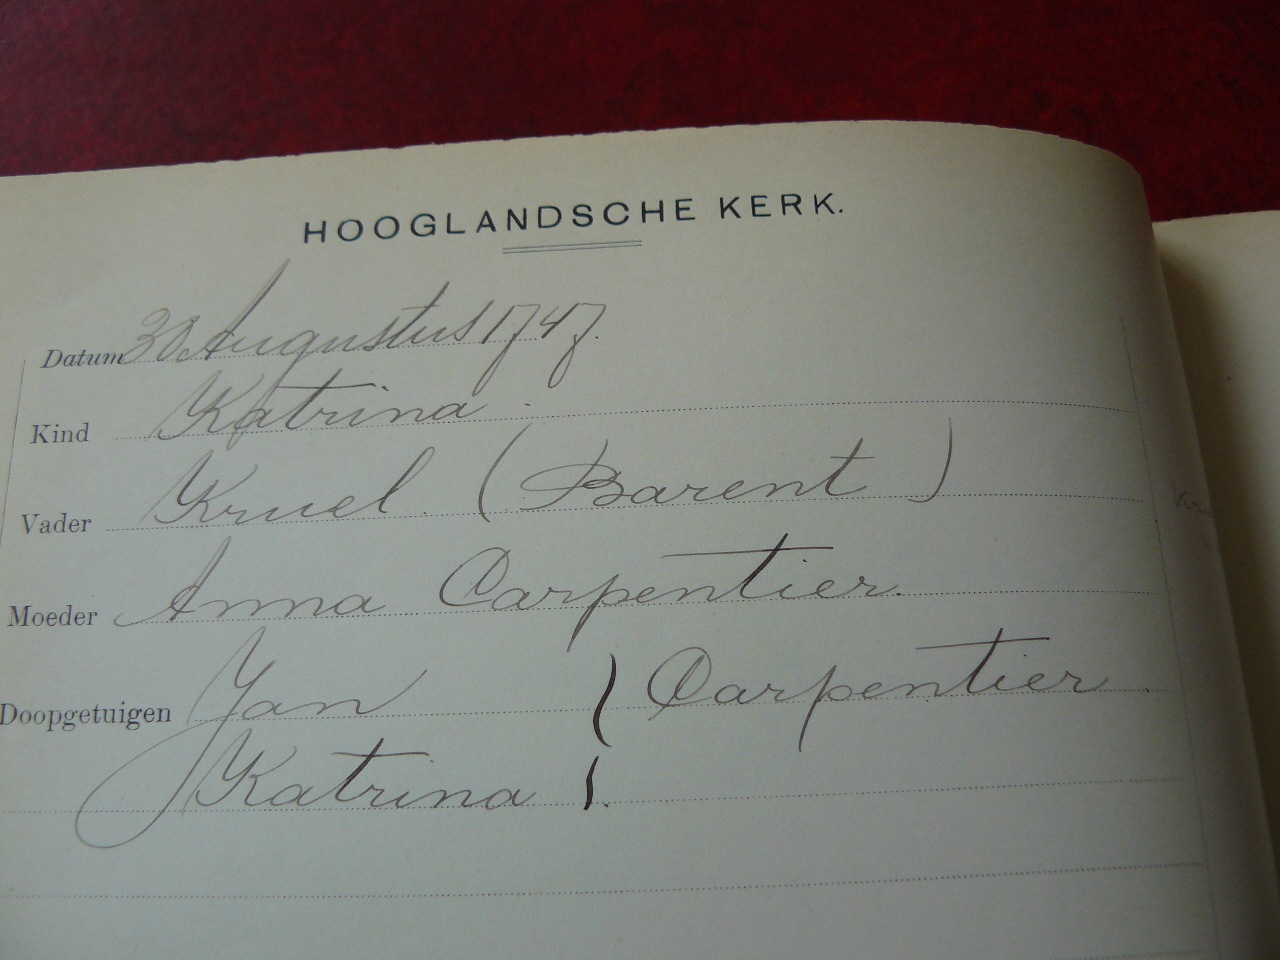 HOOGLANDSCHE KERK.
Datum 30 Augustus 1747.
Kind Katrina.
Vader Kruel. (Barent)
Moeder Anna Carpentier.
Doopgetuigen Jan } Carpentier.
Katrina }.